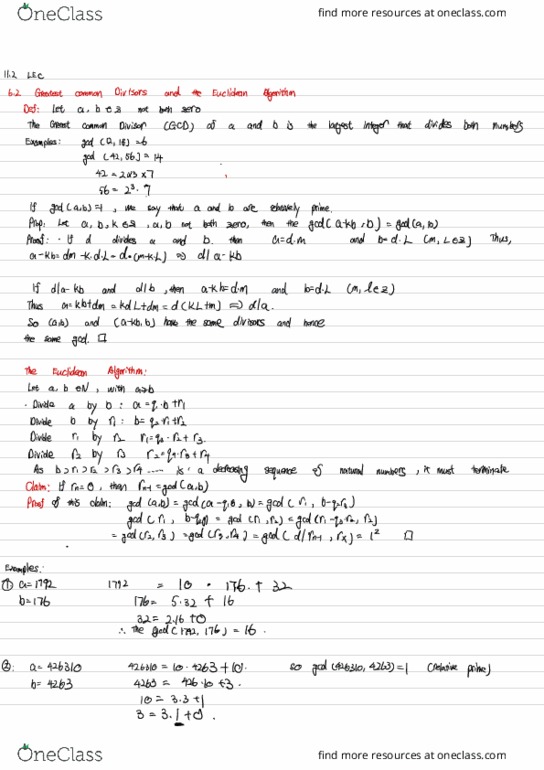 OneClass
find more resources at oneclass.com
11.2 LEC
6.2 Greatest common Divisors and the Euclidean Algorithm
Def: Let a, b ∈ Z not both zero
The Greatest common Divisor (GCD) of a and b is the largest integer that divides both numbers
Examples: gcd (12, 18) = 6
gcd (42, 56) = 14
42 = 2×3×7
56 = 2³·7
If gcd(a,b)=1, we say that a and b are relatively prime.
Prop: Let a, b, k ∈ Z, a, b not both zero, then the gcd(a-kb, b) = gcd(a, b)
Proof: · If d divides a and b. then a=d·m and b=d·L (m, L∈Z) Thus,
a-kb = dm - k·d·L = d·(m-k·L) ⇒ d|a-kb
If d|a-kb and d|b, then a-kb=d·m and b=d·L (m, l∈Z)
Thus a=kb+dm=kdL+dm=d(kL+m) ⇒ d|a.
So (a,b) and (a-kb,b) have the same divisors and hence
the same gcd. □
The Euclidean Algorithm:
Let a, b ∈ N, with a>b
· Divide a by b: a=q₁·b+r₁
Divide b by r₁: b=q₂·r₁+r₂
Divide r₁ by r₂ r₁=q₃·r₂+r₃
Divide r₂ by r₃ r₂=q₄·r₃+r₄
As b>r₁>r₂>r₃>r₄ ..... is a decreasing sequence of natural numbers, it must terminate
Claim: If rₙ=0, then rₙ₋₁=gcd(a,b)
Proof of this claim: gcd(a,b)=gcd(a-q₁b, b)=gcd(r₁, b-q₂r₁)
gcd(r₁, = gcd(r₁, r₂)=gcd(r₁-q₃r₂, r₂)
=gcd(r₂, r₃)=gcd(r₃, r₄)=gcd( □
Examples:
① a=1792 1792 = 10 · 176 + 32
b=176 176 = 5·32 + 16
32 = 2·16 +0
∴ The gcd(1792, 176) = 16.
②: a=426310 426310 = 10·4263+10 so gcd(426310, 4263)=1 (relative prime)
b=4263 4263 = 426·10+3.
10 = 3·3+1
3 = 3·1+0.
OneClass
find more resources at oneclass.com